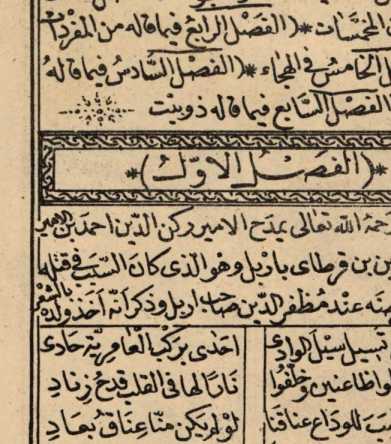 المخمسات * (الفصل الرابع فيما قاله من المفردات
الخامس في الهجاء * (الفصل السادس فيما قاله
الفصل السابع فيما قاله ذوبيت
*(الفصل الاول)*
رحمة الله تعالى يمدح الامير ركن الدين احمد بن الامير
بن قرطاى باربل وهو الذى كان السبب فى قتله
عند مظفر الدين صاحب اربل وذكر انه اخذ ولده
سبيل الوادى
احدى بركب العامرية حادى
ظاعنين وخلفوا
نارا لها فى القلب قدح زناد
للوداع عناقنا
لو لم يكن منا عناق بعاد